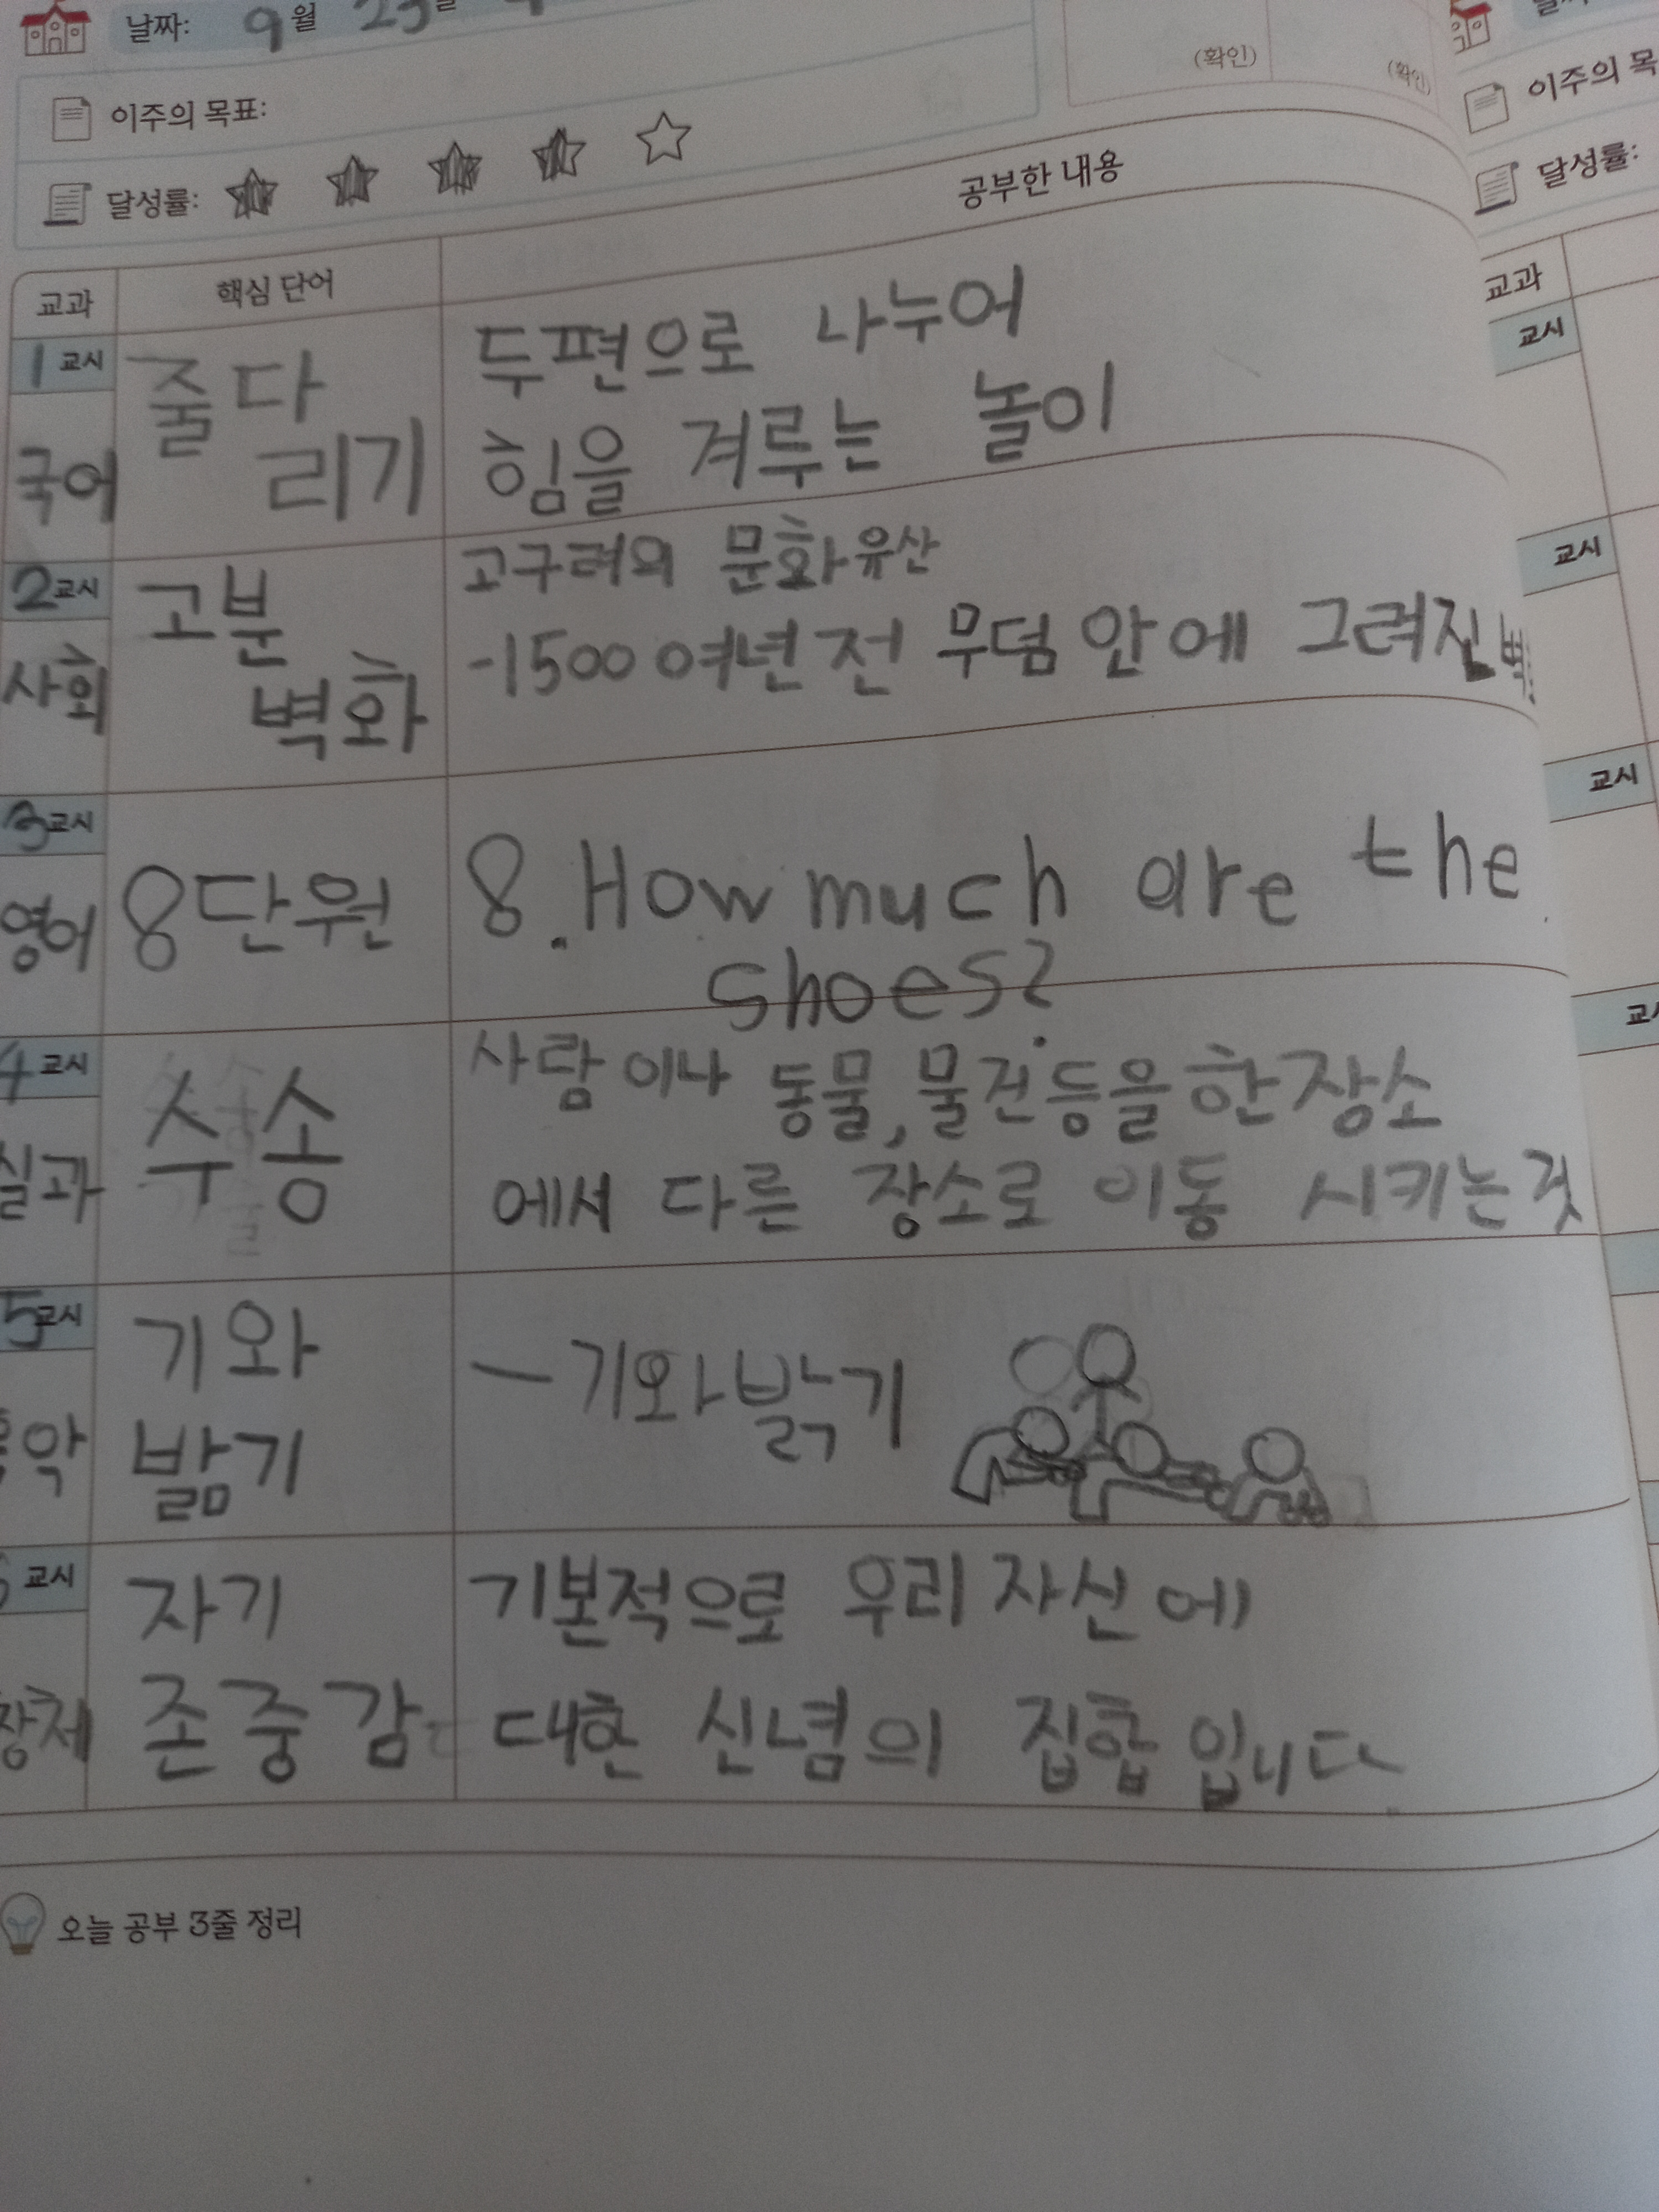 날짜: 9월 23일
(확인) (확인)
이주의 목표:
달성률:
공부한 내용
교과 핵심 단어
1교시
국어
줄다
리기
두편으로 나누어
힘을 겨루는 놀이
2교시
사회
고분
벽화
고구려의 문화유산
-1500여년 전 무덤 안에 그려진
3교시
영어
8단원
8. How much are the
shoes?
4교시
실과
수송
사람이나 동물, 물건등을 한 장소
에서 다른 장소로 이동 시키는 것
5교시
기와
밞기
- 기와밝기
교시
자기
존중감
기본적으로 우리 자신에
대한 신념의 집합입니다
오늘 공부 3줄 정리
이주의 목
달성률:
교과
교시
교시
교시